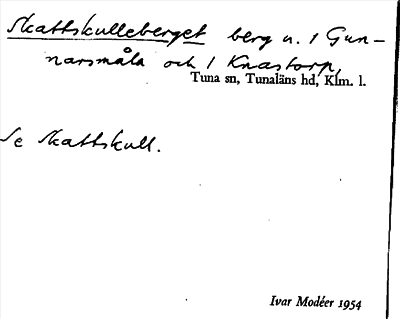 Skattskulleberget berg u. 1 Gun-
narsmåla och 1 Knastorp,
Tuna sn, Tunaläns hd, Klm. l.
Se Skattskull.
Ivar Modéer 1954